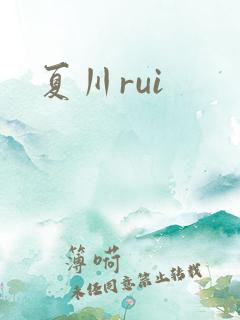 夏川rui
簿嗬
未经同意禁止转载